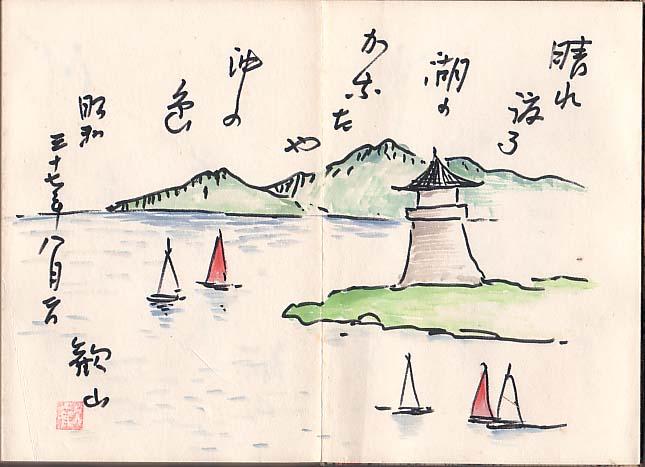 晴れ
渡る
湖の
かなた
や
沖の
色
昭和
三十七年八月
歓山